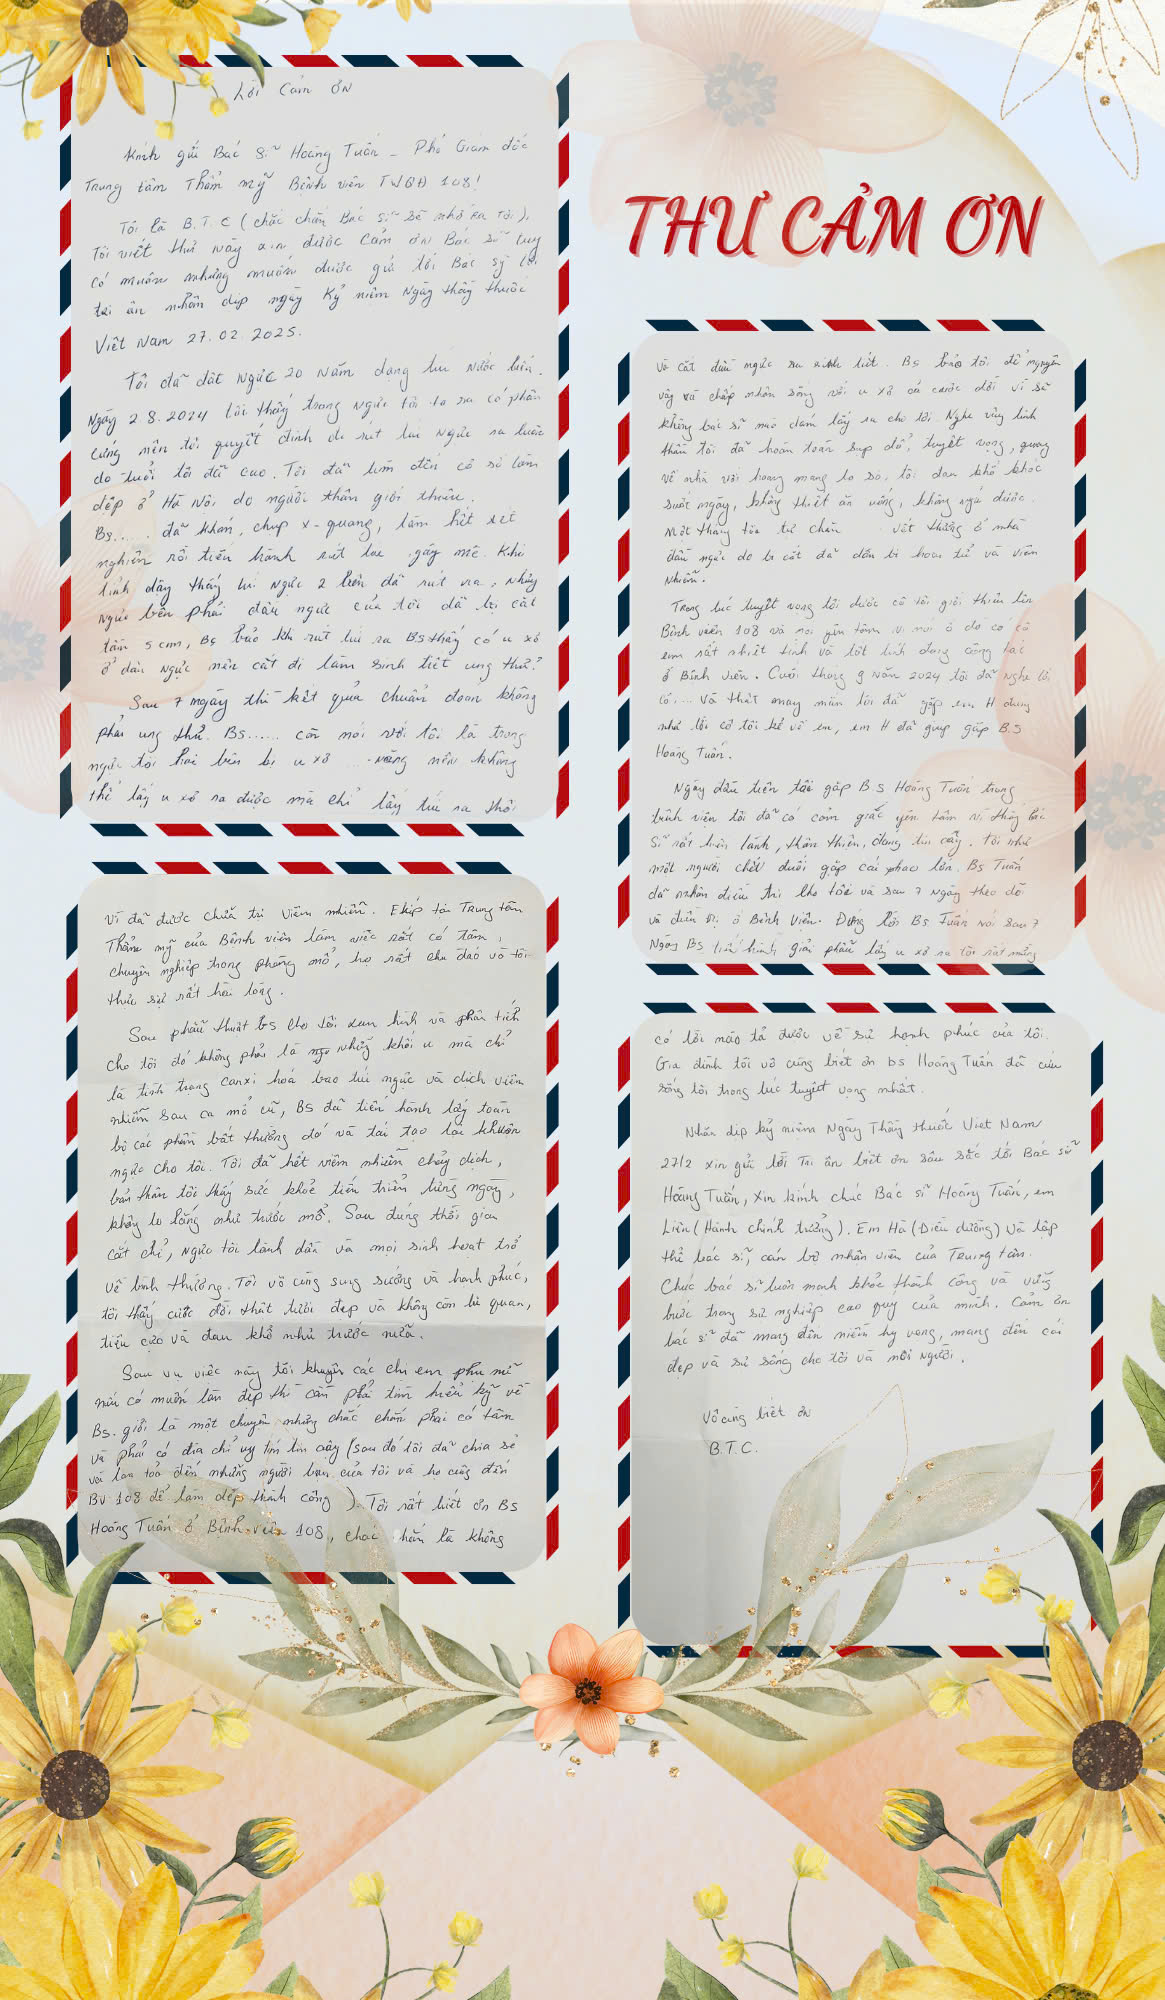 THƯ CẢM ƠN
Lời Cảm Ơn
Kính gửi Bác Sĩ Hoàng Tuấn - Phó Giám đốc
Trung tâm Thẩm mỹ Bệnh viện TWQĐ 108!
Tôi là B.T.C (chắc chắn Bác sĩ sẽ nhớ ra tôi),
Tôi viết thư này xin được cảm ơn Bác sĩ tuy
có muộn nhưng muốn được gửi tới Bác sỹ lời
tri ân nhân dịp ngày Kỷ niệm Ngày thầy thuốc
Việt Nam 27.02.2025.
Tôi đã đặt ngực 20 năm dạng túi nước biển.
Ngày 2.8.2024 tôi thấy trong ngực tôi to ra có phần
cứng nên tôi quyết định đi rút túi ngực ra luôn
do tuổi tôi đã cao. Tôi đã tìm đến cơ sở làm
đẹp ở Hà Nội do người thân giới thiệu.
Bs..... đã khám, chụp x-quang, làm hết xét
nghiệm rồi tiến hành rút túi gây mê. Khi
tỉnh dậy thấy túi ngực 2 bên đã rút ra, nhưng
ngực bên phải đầu ngực của tôi đã bị cắt
tầm 5 cm, Bs bảo khi rút túi ra Bs thấy có u xơ
ở đầu ngực nên cắt đi làm sinh tiết ung thư?
Sau 7 ngày thì kết quả chuẩn đoán không
phải ung thư. Bs...... còn nói với tôi là trong
ngực tôi hai bên bị u xơ .... nặng nên không
thể lấy u xơ ra được mà chỉ lấy túi ra thôi
và cắt đầu ngực ra sinh tiết. Bs bảo tôi để nguyên
vậy và chấp nhận sống với u xơ cả cuộc đời vì sẽ
không bác sĩ nào dám lấy ra cho tôi. Nghe vậy tinh
thần tôi đã hoàn toàn sụp đổ, tuyệt vọng, quay
về nhà với hoang mang lo sợ, tôi đau khổ khóc
suốt ngày, không thiết ăn uống, không ngủ được.
Một tháng sau vết thương ở nhà
đầu ngực do bị cắt đã dần bị hoại tử và viêm
nhiễm.
Trong lúc tuyệt vọng tôi được cô tôi giới thiệu lên
Bệnh viện 108 và nói yên tâm vì nói ở đó có cô
em rất nhiệt tình và tốt tính đang công tác
ở Bệnh viện. Cuối tháng 9 năm 2024 tôi đã nghe lời
cô.... Và thật may mắn tôi đã gặp em H đúng
như lời cô tôi kể về em, em H đã giúp gặp B.S
Hoàng Tuấn.
Ngày đầu tiên tôi gặp B.S Hoàng Tuấn trong
bệnh viện tôi đã có cảm giác yên tâm vì thấy bác
sĩ rất hiền lành, thân thiện, đáng tin cậy. Tôi như
một người chết đuối gặp cái phao lớn. Bs Tuấn
đã nhận điều trị cho tôi và sau 7 ngày theo dõi
và điều trị ở Bệnh Viện. Đúng lời Bs Tuấn nói sau 7
Ngày Bs tiến hành giải phẫu lấy u xơ ra tôi rất mừng
vì đã được chữa trị viêm nhiễm. Ekip tại Trung tâm
Thẩm mỹ của Bệnh viện làm việc rất có tâm,
chuyên nghiệp trong phòng mổ, họ rất chu đáo và tôi
thực sự rất hài lòng.
Sau phẫu thuật bs cho tôi xem hình và phân tích
cho tôi đó không phải là những khối u mà chỉ
là tình trạng canxi hoá bao túi ngực và dịch viêm
nhiễm sau ca mổ cũ, BS đã tiến hành lấy toàn
bộ các phần bất thường đó và tái tạo lại khuôn
ngực cho tôi. Tôi đã hết viêm nhiễm chảy dịch,
bản thân tôi thấy sức khoẻ tiến triển từng ngày,
không lo lắng như trước mổ. Sau đúng thời gian
cắt chỉ, ngực tôi lành dần và mọi sinh hoạt trở
về bình thường. Tôi vô cùng sung sướng và hạnh phúc,
tôi thấy cuộc đời thật tươi đẹp và không còn bi quan,
tiêu cực và đau khổ như trước nữa.
Sau vụ việc này tôi khuyên các chị em phụ nữ
nếu có muốn làm đẹp thì cần phải tìm hiểu kỹ về
Bs. giỏi là một chuyện nhưng chắc chắn phải có tâm
và phải có địa chỉ uy tín tin cậy (sau đó tôi đã chia sẻ
và lan toả đến những người bạn của tôi và họ cũng đến
BV 108 để làm đẹp thành công). Tôi rất biết ơn BS
Hoàng Tuấn ở Bệnh viện 108, chắc chắn là không
có lời nào tả được về sự hạnh phúc của tôi.
Gia đình tôi vô cùng biết ơn bs Hoàng Tuấn đã cứu
sống tôi trong lúc tuyệt vọng nhất.
Nhân dịp kỷ niệm Ngày Thầy thuốc Việt Nam
27/2 xin gửi tới Tri ân biết ơn sâu sắc tới Bác sĩ
Hoàng Tuấn, xin kính chúc Bác sĩ Hoàng Tuấn, em
Liên (Hành chính trưởng). Em Hà (Điều dưỡng) và tập
thể bác sĩ, cán bộ nhân viên của Trung tâm.
Chúc bác sĩ luôn mạnh khỏe thành công và vững
bước trong sự nghiệp cao quý của mình. Cảm ơn
bác sĩ đã mang đến niềm hy vọng, mang đến cái
đẹp và sự sống cho tôi và mọi người.
Vô cùng biết ơn
B.T.C.